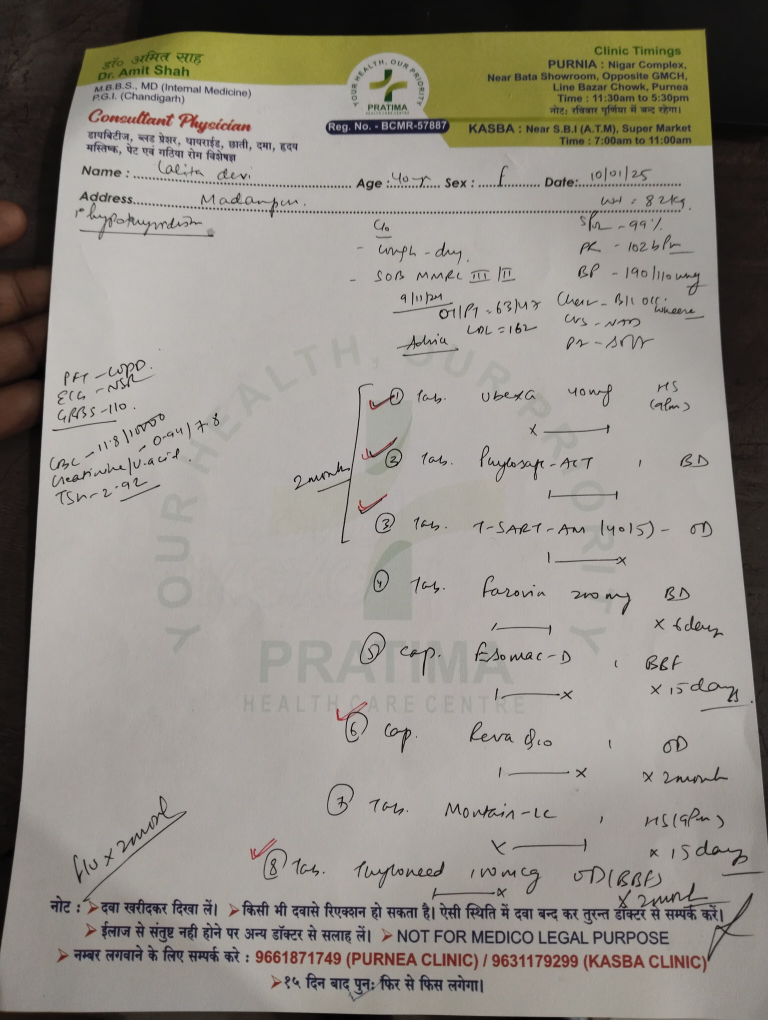 डॉ० अमित साह
Dr. Amit Shah
M.B.B.S., MD (Internal Medicine)
P.G.I. (Chandigarh)
Consultant Physician
डायबिटीज, ब्लड प्रेशर, थायराईड, छाती, दमा, हृदय
मस्तिष्क, पेट एवं गठिया रोग विशेषज्ञ
YOUR HEALTH, OUR PRIORITY
PRATIMA
HEALTH CARE CENTRE
Reg. No. - BCMR-57887
Clinic Timings
PURNIA : Nigar Complex,
Near Bata Showroom, Opposite GMCH,
Line Bazar Chowk, Purnea
Time : 11:30am to 5:30pm
नोट: रविवार पूर्णिया में बन्द रहेगा।
KASBA : Near S.B.I (A.T.M), Super Market
Time : 7:00am to 11:00am
Name : Lalita devi Age : 40 yr Sex : f Date: 10/01/25
Address Madanpur. wt = 82kg
hypothyroidism
C/o
- Cough - dry
- SOB MMRC III/II
9/11/24
OT/PT = 63/47
LDL = 162
Advice
SPO2 - 99%
PR - 102 bpm
BP - 190/110 mmHg
Chest - B/L wheeze
CVS - NAD
PFT - COPD
ECG - NSR
GRBS - 110
CBC - 11.8/10000
Creatinine/U.acid - 0.94/7.8
TSH - 2.92
2 months
① Tab. Ubexa 40mg HS (9pm)
② Tab. BD
③ Tab. T-SART-AM (40/5) - OD
④ Tab. Farovin 200mg BD
x 6 days
⑤ Cap. Esomac-D, BBF
x 15 days
⑥ Cap. Reva, OD
x 2 month
⑦ Tab. Montain-LC, HS (9pm)
x 15 days
⑧ Tab. Thyroneed 100mcg OD (BBF)
x 2 month
f/u x 2 month
YOUR HEALTH, OUR PRIORITY
PRATIMA
HEALTH CARE CENTRE
नोट : ➤ दवा खरीदकर दिखा लें। ➤ किसी भी दवासे रिएक्शन हो सकता है। ऐसी स्थिति में दवा बन्द कर तुरन्त डॉक्टर से सम्पर्क करें।
➤ ईलाज से संतुष्ट नही होने पर अन्य डॉक्टर से सलाह लें। ➤ NOT FOR MEDICO LEGAL PURPOSE
➤ नम्बर लगवाने के लिए सम्पर्क करे : 9661871749 (PURNEA CLINIC) / 9631179299 (KASBA CLINIC)
➤ १५ दिन बाद पुन: फिर से फिस लगेगा।